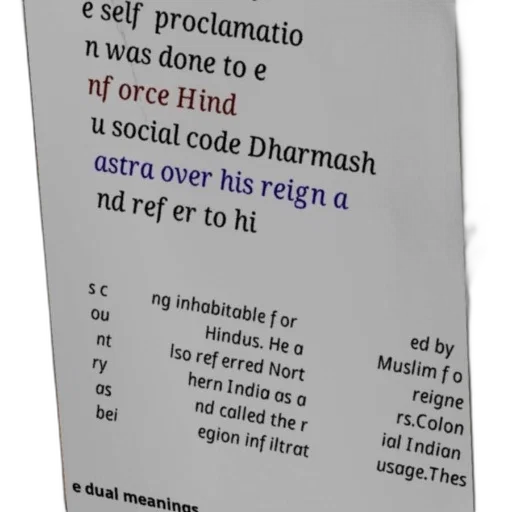 e self proclamatio
n was done to e
nforce Hind
u social code Dharmash
astra over his reign a
nd refer to hi
s c
ou
nt
ry
as
bei
ng inhabitable for
Hindus. He a
lso referred Nort
hern India as a
nd called the r
egion infiltrat
ed by
Muslim fo
reigne
rs.Colon
ial Indian
usage.Thes
e dual meanings